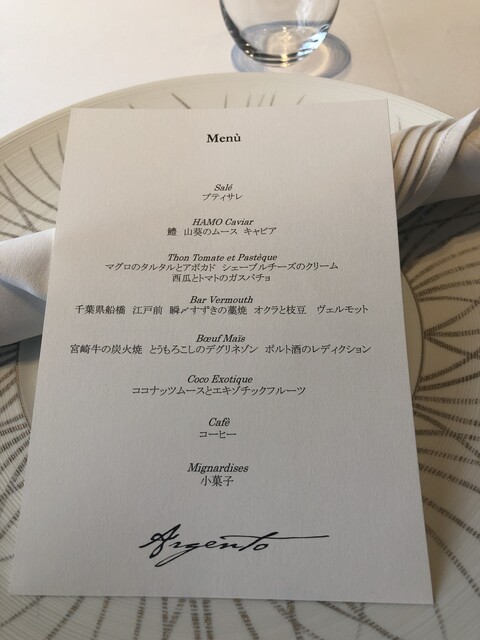 Menù
Salé
プティサレ
HAMO Caviar
鱧 山葵のムース キャビア
Thon Tomate et Pastèque
マグロのタルタルとアボカド シェーブルチーズのクリーム
西瓜とトマトのガスパチョ
Bar Vermouth
千葉県船橋 江戸前 瞬〆すずきの藁焼 オクラと枝豆 ヴェルモット
Bœuf Maïs
宮崎牛の炭火焼 とうもろこしのデグリネゾン ポルト酒のレディクション
Coco Exotique
ココナッツムースとエキゾチックフルーツ
Cafè
コーヒー
Mignardises
小菓子
Argento